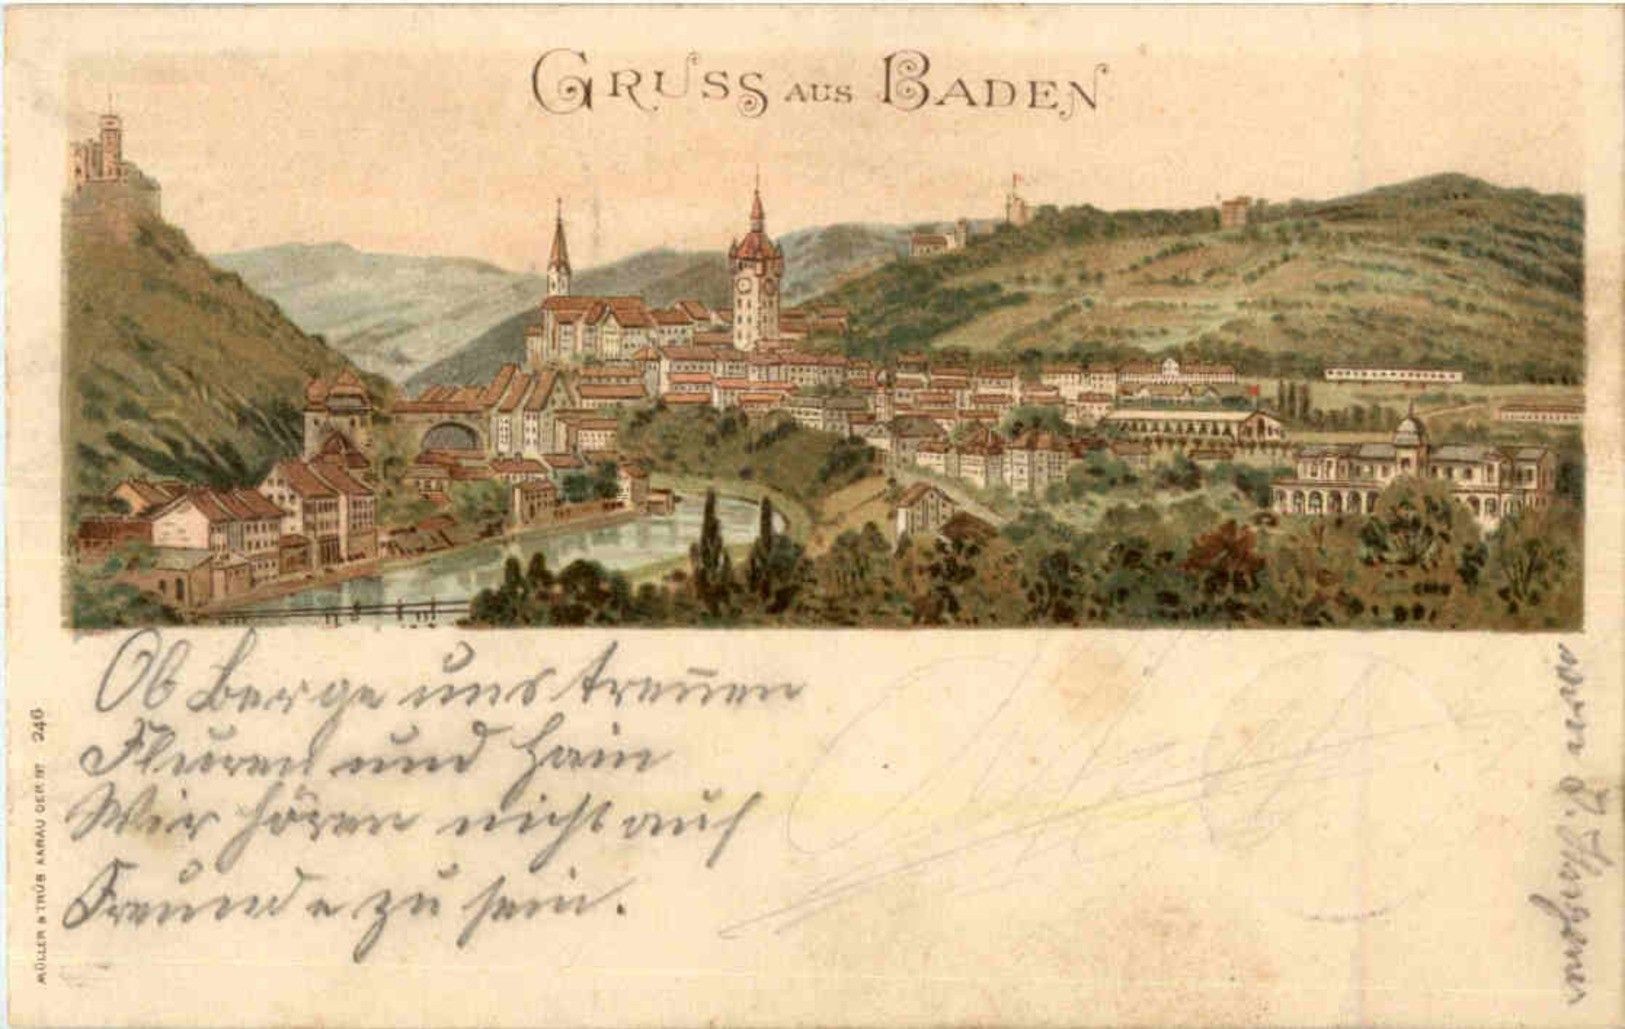 GRUSS AUS BADEN
Ob Berge uns trennen
Fluren und Hain
Wir hören nicht auf
Freunde zu sein.
MÜLLER & TRÜB AARAU DEP. Nº 246